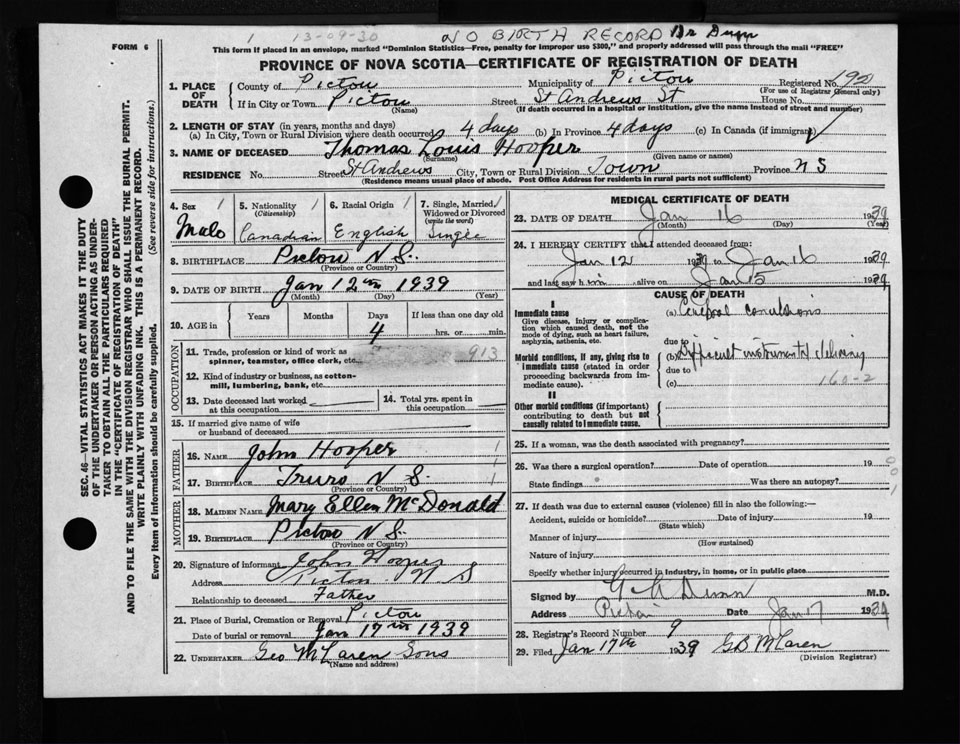 1 13-09-30 NO BIRTH RECORD Dr Dunn
FORM 6
This form if placed in an envelope, marked "Dominion Statistics—Free, penalty for improper use $300," and properly addressed will pass through the mail "FREE"
PROVINCE OF NOVA SCOTIA—CERTIFICATE OF REGISTRATION OF DEATH
1. PLACE OF DEATH
County of Pictou Municipality of Pictou Registered No.
(For use of Registrar General only)
If in City or Town Pictou Street St Andrews St House No.
(Name) (If death occurred in a hospital or institution, give the name instead of street and number)
2. LENGTH OF STAY (in years, months and days)
(a) In City, Town or Rural Division where death occurred 4 days (b) In Province 4 days (c) In Canada (if immigrant)
3. NAME OF DECEASED Thomas Louis Hooper
(Surname) (Given name or names)
RESIDENCE No. Street St Andrews City, Town or Rural Division Town Province N S
(Residence means usual place of abode. Post Office Address for residents in rural parts not sufficient)
4. Sex 1
Male
5. Nationality 1
(Citizenship)
Canadian
6. Racial Origin 1
English
7. Single, Married, Widowed or Divorced 1
(write the word)
Single
8. BIRTHPLACE Pictou N S.
(Province or Country)
9. DATE OF BIRTH Jan 12th 1939
(Month) (Day) (Year)
10. AGE in Years Months Days If less than one day old
4 hrs. or min.
OCCUPATION
11. Trade, profession or kind of work as spinner, teamster, office clerk, etc. 913
12. Kind of industry or business, as cotton-mill, lumbering, bank, etc.
13. Date deceased last worked at this occupation
14. Total yrs. spent in this occupation
15. If married give name of wife or husband of deceased
FATHER
16. NAME John Hooper 1
17. BIRTHPLACE Truro N S. 1
(Province or Country)
MOTHER
18. MAIDEN NAME Mary Ellen McDonald
19. BIRTHPLACE Pictou N S.
(Province or Country)
20. Signature of informant John Hooper
Address Pictou N S
Relationship to deceased Father
21. Place of Burial, Cremation or Removal Pictou
Date of burial or removal Jan 17th 1939
22. UNDERTAKER Geo McLaren Sons
(Name and address)
MEDICAL CERTIFICATE OF DEATH
23. DATE OF DEATH Jan 16 1939
(Month) (Day)
24. I HEREBY CERTIFY that I attended deceased from:
Jan 12 1939 to Jan 16 1939
and last saw him alive on Jan 15 1939
CAUSE OF DEATH
I
Immediate cause
Give disease, injury or complication which caused death, not the mode of dying, such as heart failure, asphyxia, asthenia, etc.
(a) Cerebral convulsions
due to
Morbid conditions, if any, giving rise to immediate cause (stated in order proceeding backwards from immediate cause).
(b) Difficult instrumental delivery
due to
(c) 160-2
II
Other morbid conditions (if important) contributing to death but not causally related to immediate cause.
25. If a woman, was the death associated with pregnancy?
26. Was there a surgical operation? Date of operation 19
State findings Was there an autopsy?
27. If death was due to external causes (violence) fill in also the following:
Accident, suicide or homicide? Date of injury 19
(State which)
Manner of injury
(How sustained)
Nature of injury
Specify whether injury occurred in industry, in home, or in public place
Signed by G A Dunn M.D.
Address Pictou Date Jan 17 1939
28. Registrar's Record Number 9
29. Filed Jan 17th 1939 GB McLaren
(Division Registrar)
SEC. 46—VITAL STATISTICS ACT MAKES IT THE DUTY
OF THE UNDERTAKER OR PERSON ACTING AS UNDER-
TAKER TO OBTAIN ALL THE PARTICULARS REQUIRED
IN THE "CERTIFICATE OF REGISTRATION OF DEATH"
AND TO FILE THE SAME WITH THE DIVISION REGISTRAR WHO SHALL ISSUE THE BURIAL PERMIT.
WRITE PLAINLY WITH UNFADING INK. THIS IS A PERMANENT RECORD.
Every item of information should be carefully supplied. (See reverse side for instructions.)